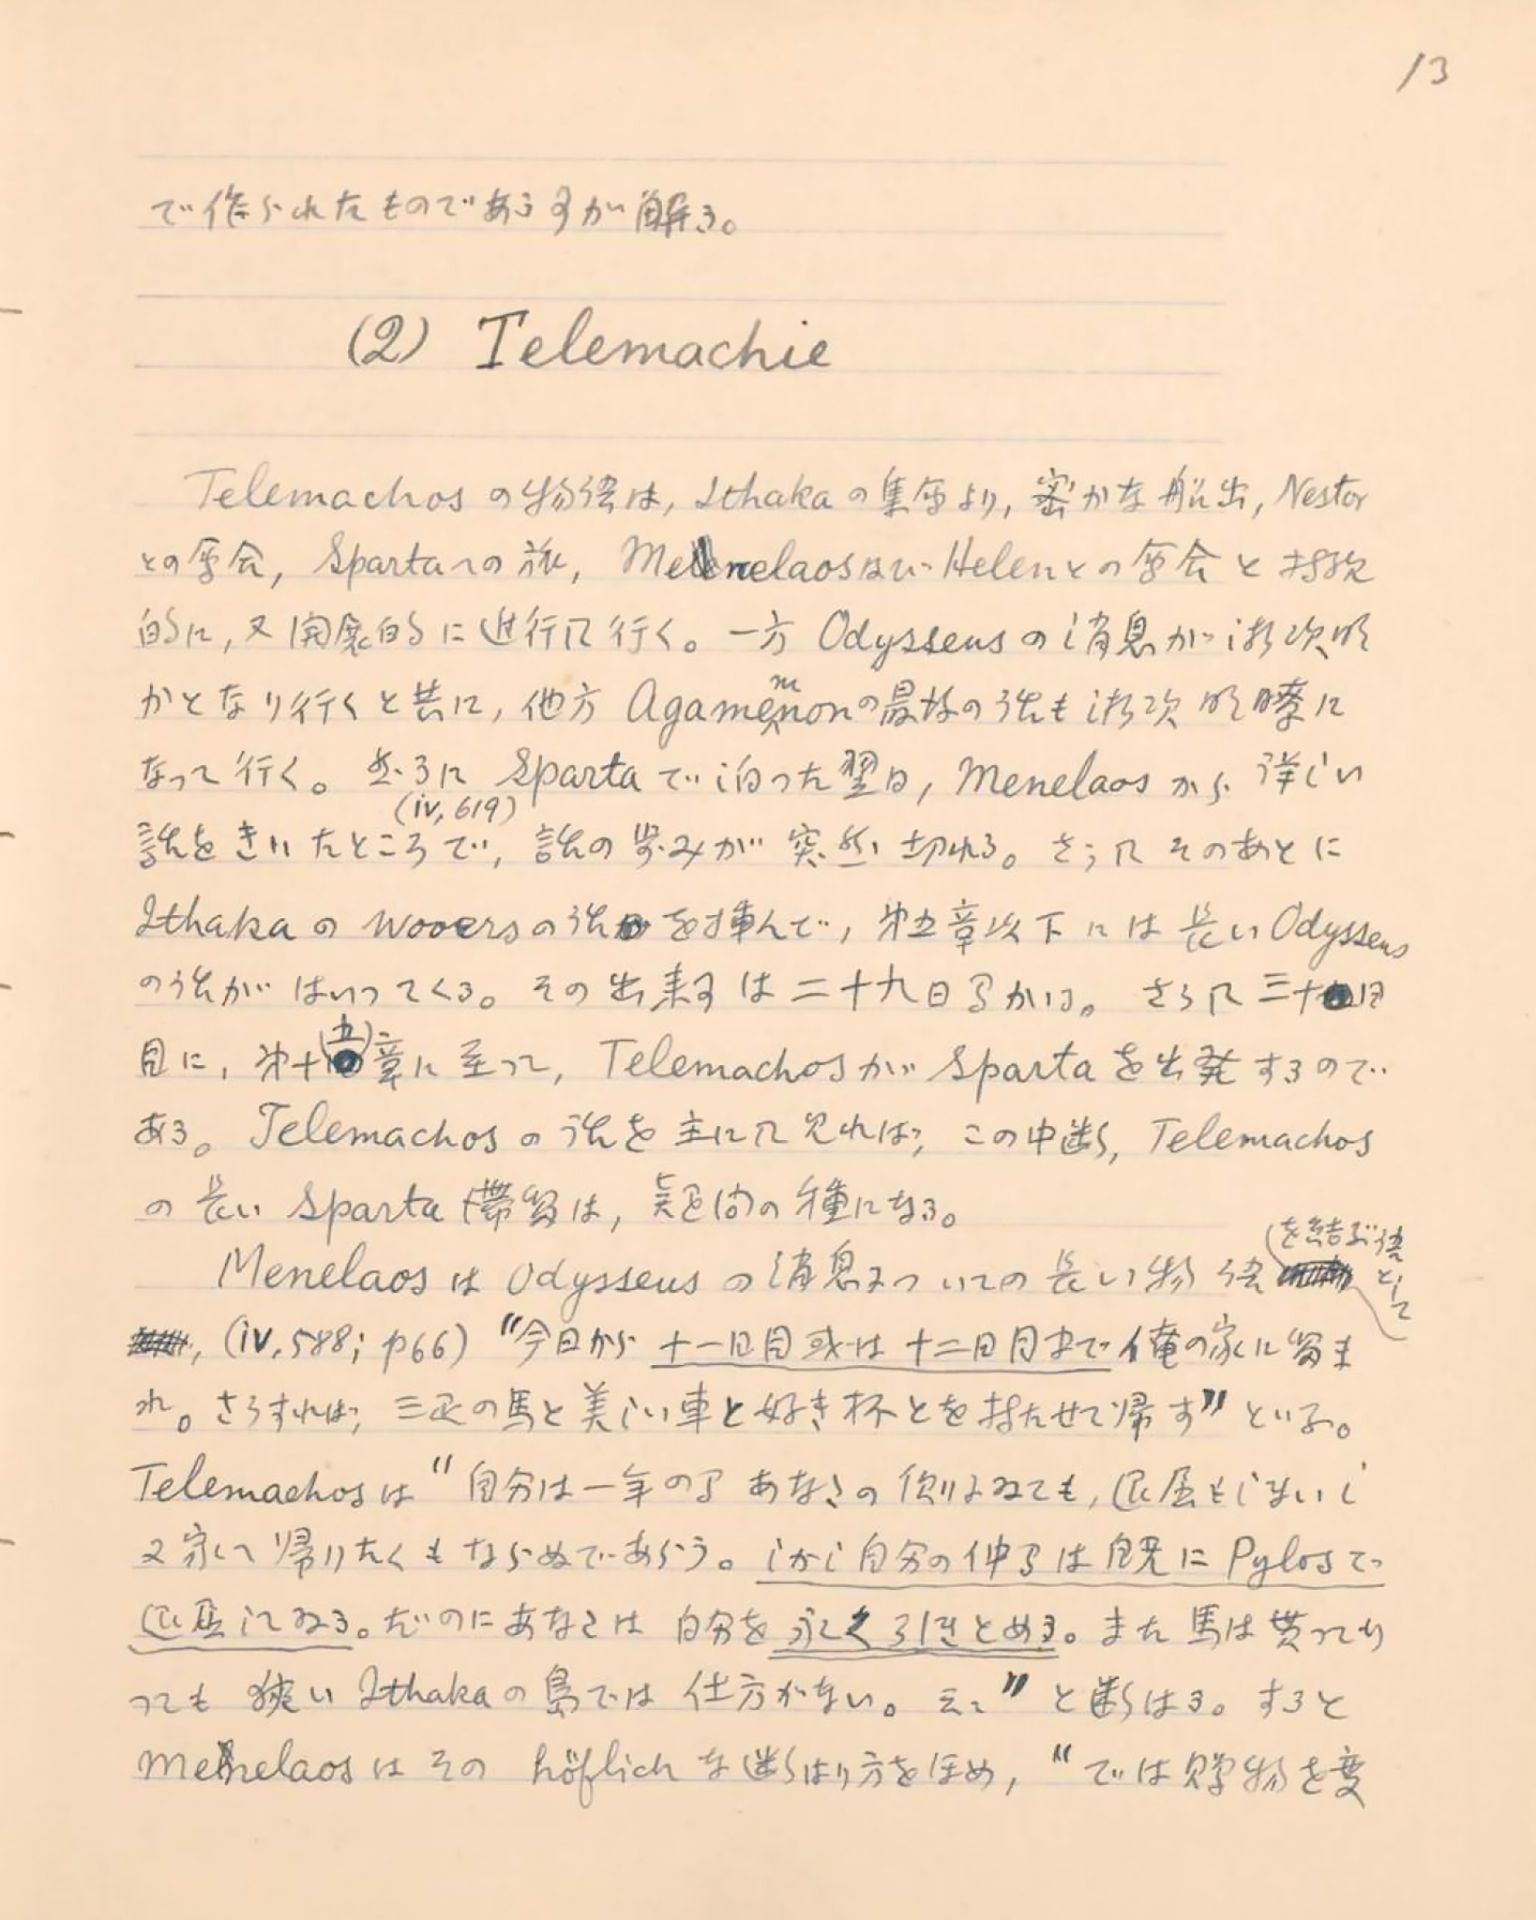 13
で作られたものである事が解る。
(2) Telemachie
Telemachosの物語は, Ithakaの集会より, 密かな船出, Nestor
との会合, Spartaへの旅, Menelaos及びHelenとの会合と持続
的に, 又開展的に進行して行く。一方Odysseusの消息が漸次明
かとなり行くと共に, 他方Agamemnonの最後の話も漸次明瞭に
なって行く。然るにSpartaで泊った翌日, Menelaosから詳しい
話をきいたところで, (iv, 619) 話の歩みが突然切れる。さうしてそのあとに
Ithakaのwooersの話を挿んで, 第五章以下には長いOdysseus
の話がはいってくる。その出来事は二十九日間かゝる。さうして三十日
目に, 第十(五)章に至って, TelemachosがSpartaを出発するので
ある。Telemachosの話を主にして見れば, この中断, Telemachos
の長いSparta滞留は, 疑問の種になる。
MenelaosはOdysseusの消息についての長い物語を結ぶ語として
, (iv, 588; p66) "今日から十一日目或は十二日目まで俺の家に留ま
れ。さうすれば, 三疋の馬と美しい車と好き杯とを持たせて帰す"といふ。
Telemachosは"自分は一年の間あなたの側にゐても, 退屈もしないし
又家へ帰りたくもならぬであらう。しかし自分の仲間は既にPylosで
退屈してゐる。だのにあなたは自分を永く引きとめる。また馬は貰って行
っても狭いIthakaの島では仕方がない。云々"と断はる。すると
Menelaosはそのhöflichな断はり方をほめ, "では贈物を変